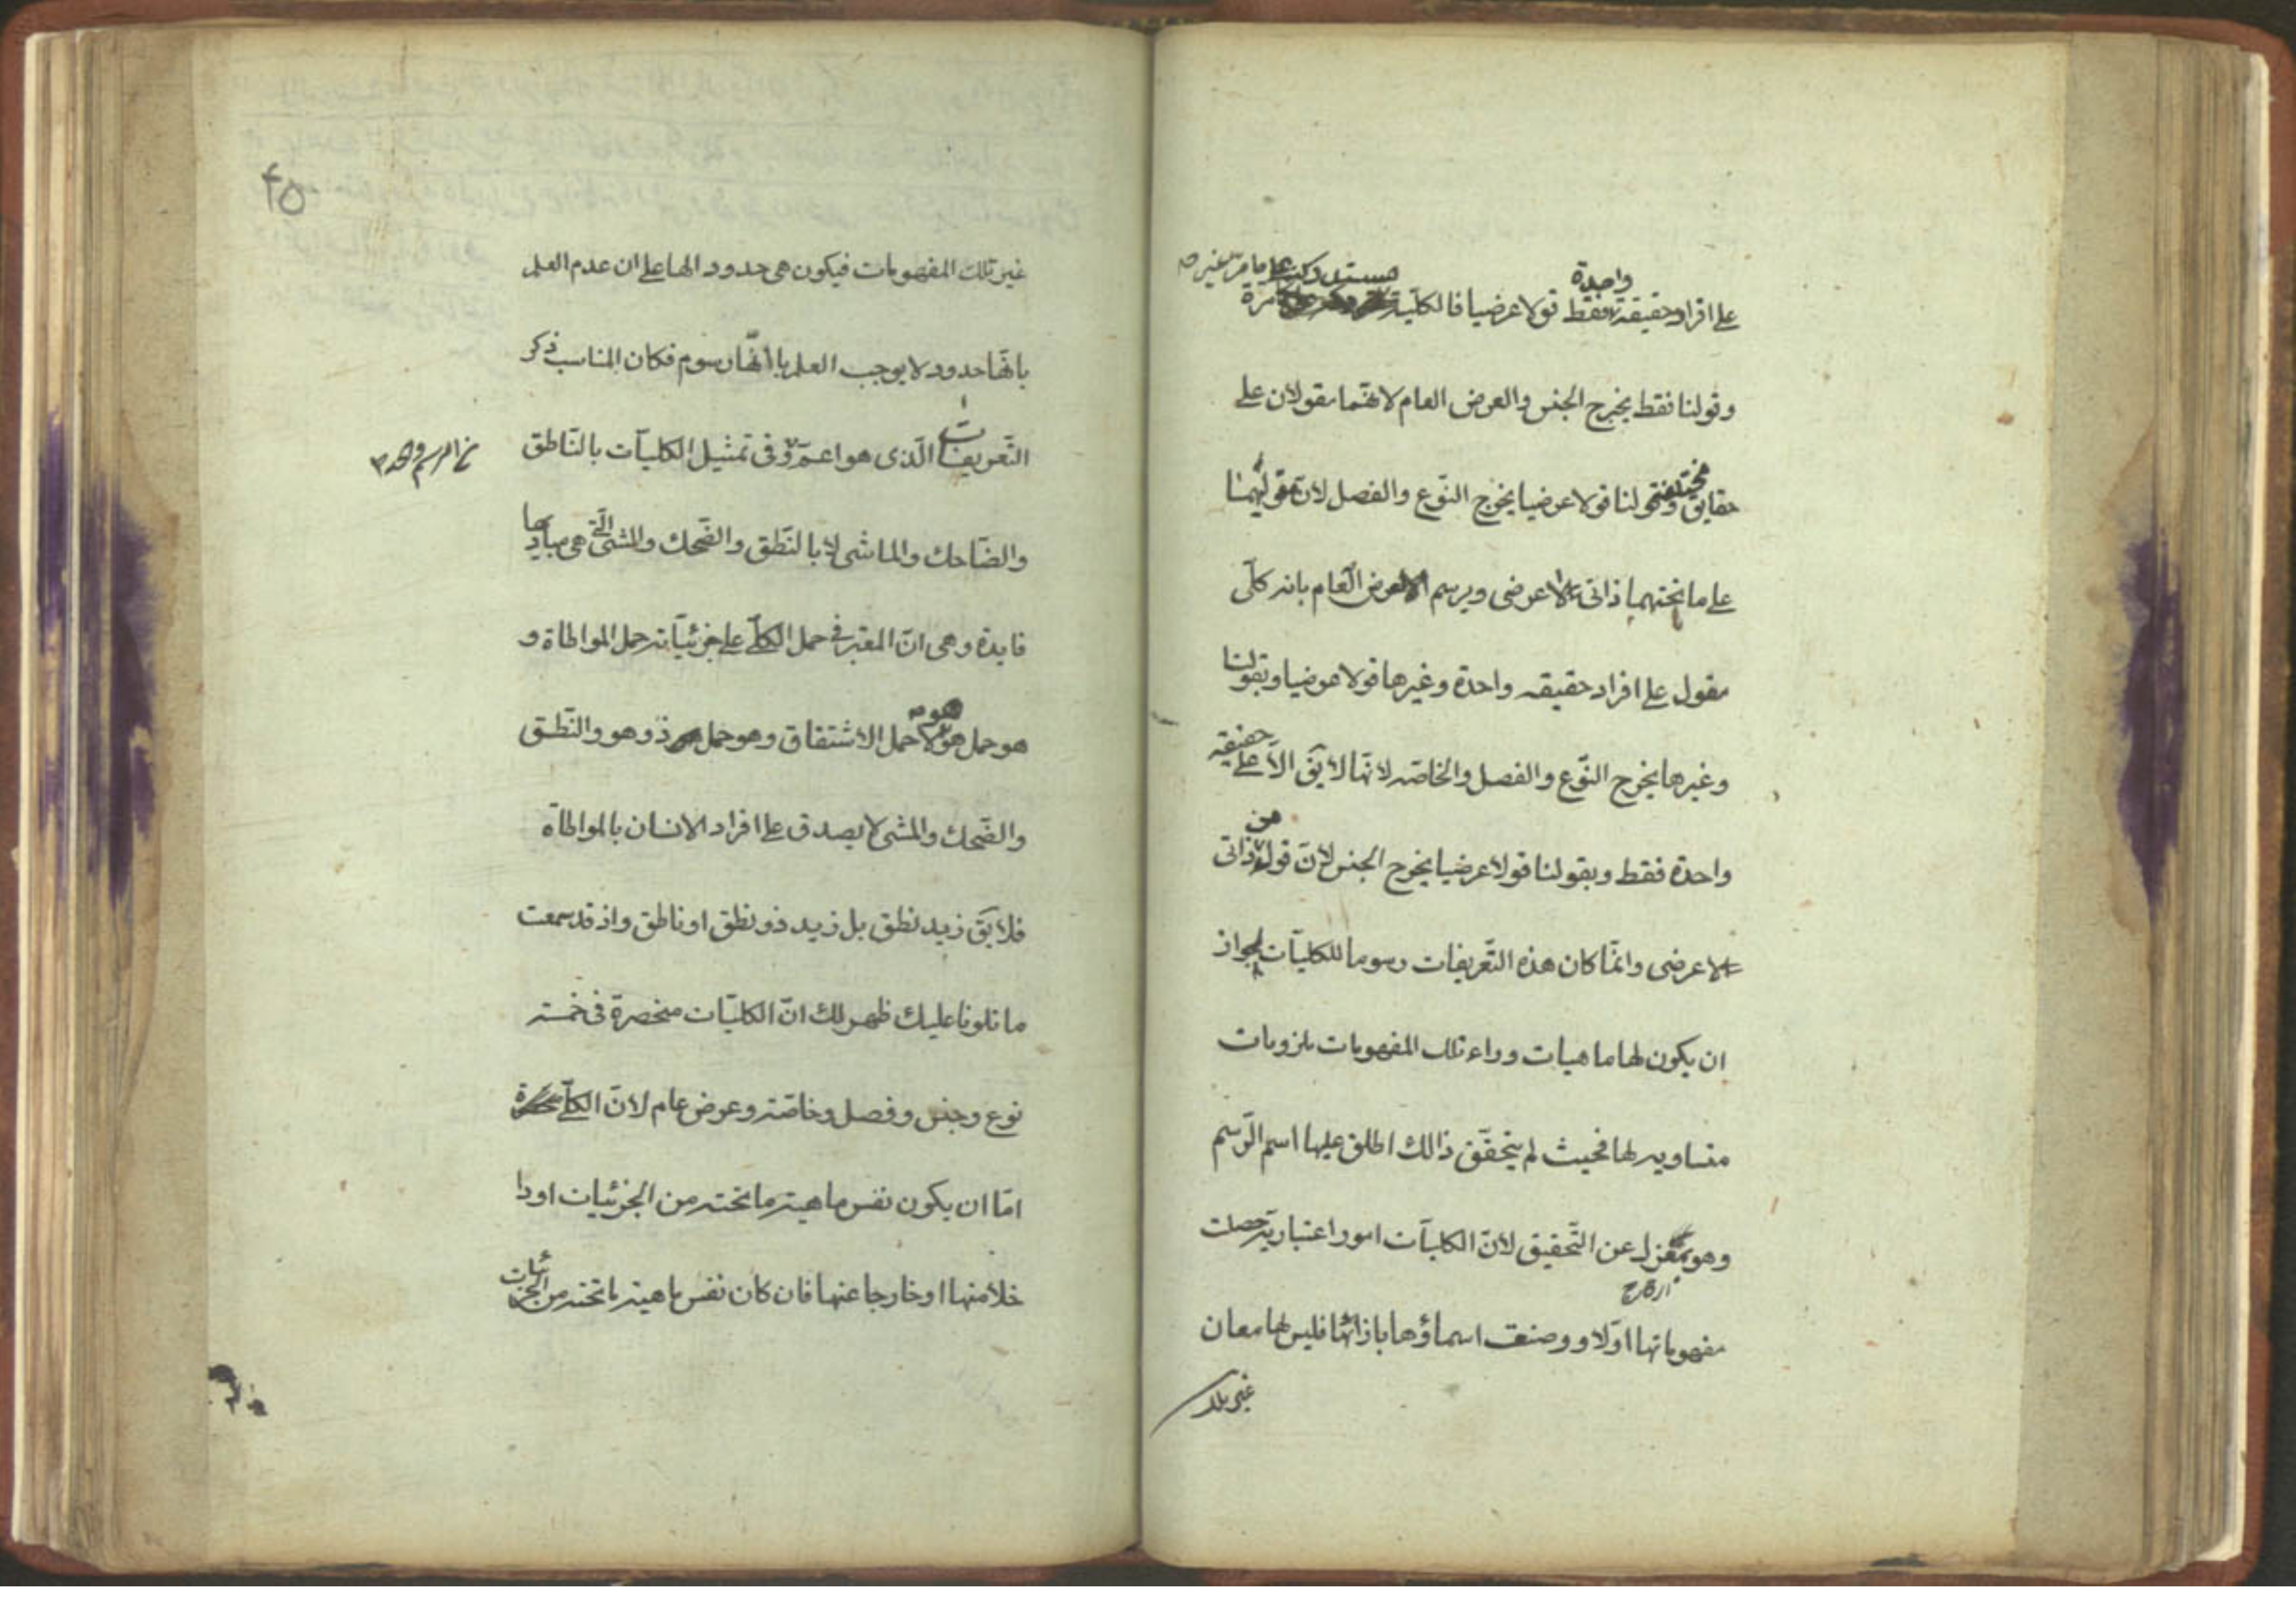 واحدة
مستدركة على ما مر غير مرة
على افراد حقيقة فقط قولا عرضيا فالكلية
وقولنا فقط يخرج الجنس والعرض العام لانهما مقولان على
حقايق مختلفة وقولنا قولا عرضيا يخرج النوع والفصل لان قوليهما
على ما تحتهما ذاتى لا عرضى ويرسم العرض العام بانه كلّى
مقول على افراد حقيقه واحدة وغيرها قولا عرضيا وبقولنا
وغيرها يخرج النوّع والفصل والخاصّه لانها لا يق الاّ على حقيقه
واحدة فقط وبقولنا قولا عرضيا يخرج الجنس لانّ قوله ذاتى
لا عرضى وانمّا كان هذه التّعريفات رسوما للكليّات لجواز
ان يكون لها ماهيات وراء تلك المفهومات ملزومات
متساويه لها فحيث لم يتحقّق ذالك اطلق عليها اسم الرّسم
وهو بمعزل عن التّحقيق لانّ الكليّات امور اعتباريّة حصلت
مفهوماتها اوّلا ووضعت اسماؤها بازائها فليس لها معان
غير تلك
٤٥
غير تلك المفهومات فيكون هى حدود الها على ان عدم العلم
بانهّا حدود لا يوجب العلم بانهّا رسوم فكان المناسب ذكر
التّعريفات الّذى هو اعمّ وفى تمثيل الكليّات بالنّاطق
والضّاحك والماشى لا بالنّطق والضّحك والمشى الّتى هى مباديها
فايدة وهى انّ المعتبر فى حمل الكلّى على جزئيّاته حمل المواطاة و
هو حمل هو هو لا حمل الاشتقاق وهو حمل ذو هو والنّطق
والضّحك والمشى لا يصدق على افراد الانسان بالمواطاة
فلا يق زيد نطق بل زيد ذو نطق او ناطق واذ قد سمعت
ما تلونا عليك ظهر لك انّ الكليّات منحصرة فى خمسة
نوع وجنس وفصل وخاصّة وعرض عام لانّ الكلّى
امّا ان يكون نفس ماهية ما تحته من الجزئيات او دا
خلا منها او خارجا عنها فان كان نفس ماهية ما تحته من الجزئيات